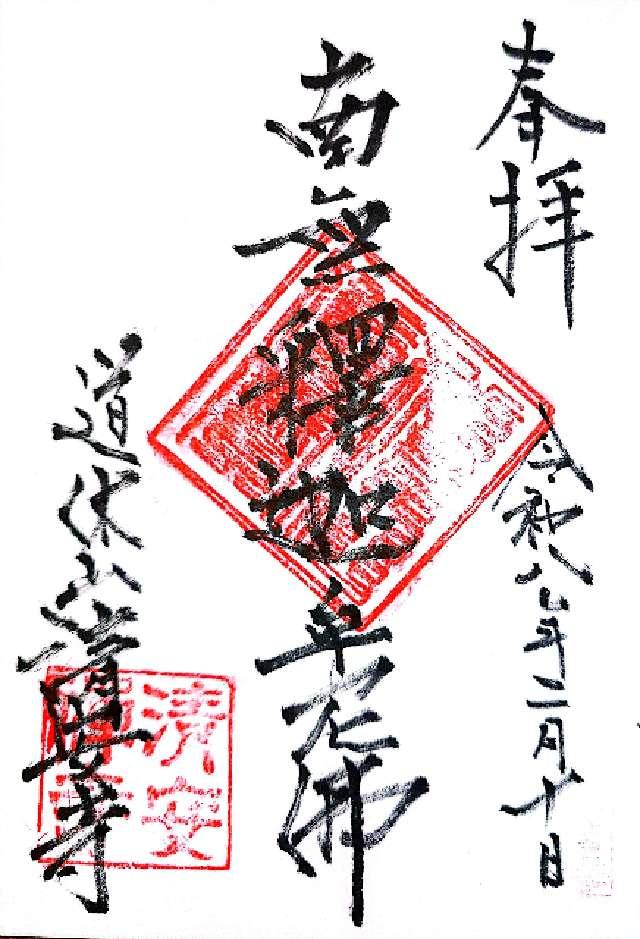 奉拝
令和八年二月十日
南無釋迦牟尼佛
道休山清安寺
清安